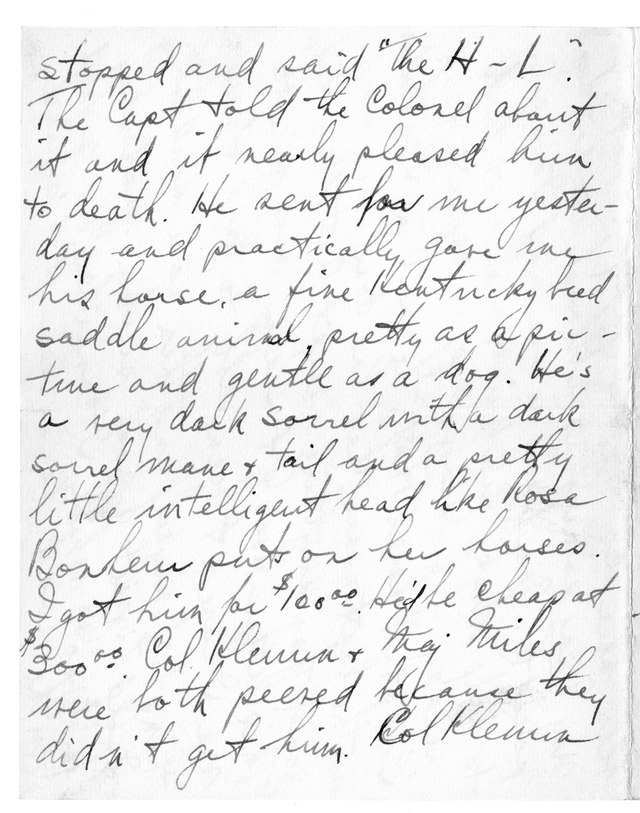 stopped and said "The H - L".
The Capt told the Colonel about
it and it nearly pleased him
to death. He sent for me yester-
day and practically gave me
his horse, a fine Kentucky bred
saddle animal, pretty as a pic-
ture and gentle as a dog. He's
a very dark sorrel with a dark
sorrel mane & tail and a pretty
little intelligent head like Rosa
Bonheur puts on her horses.
I got him for $100.00. He'd be cheap at
$300.00. Col. Klemm & Maj. Miles
were both peeved because they
didn't get him. Col Klemm